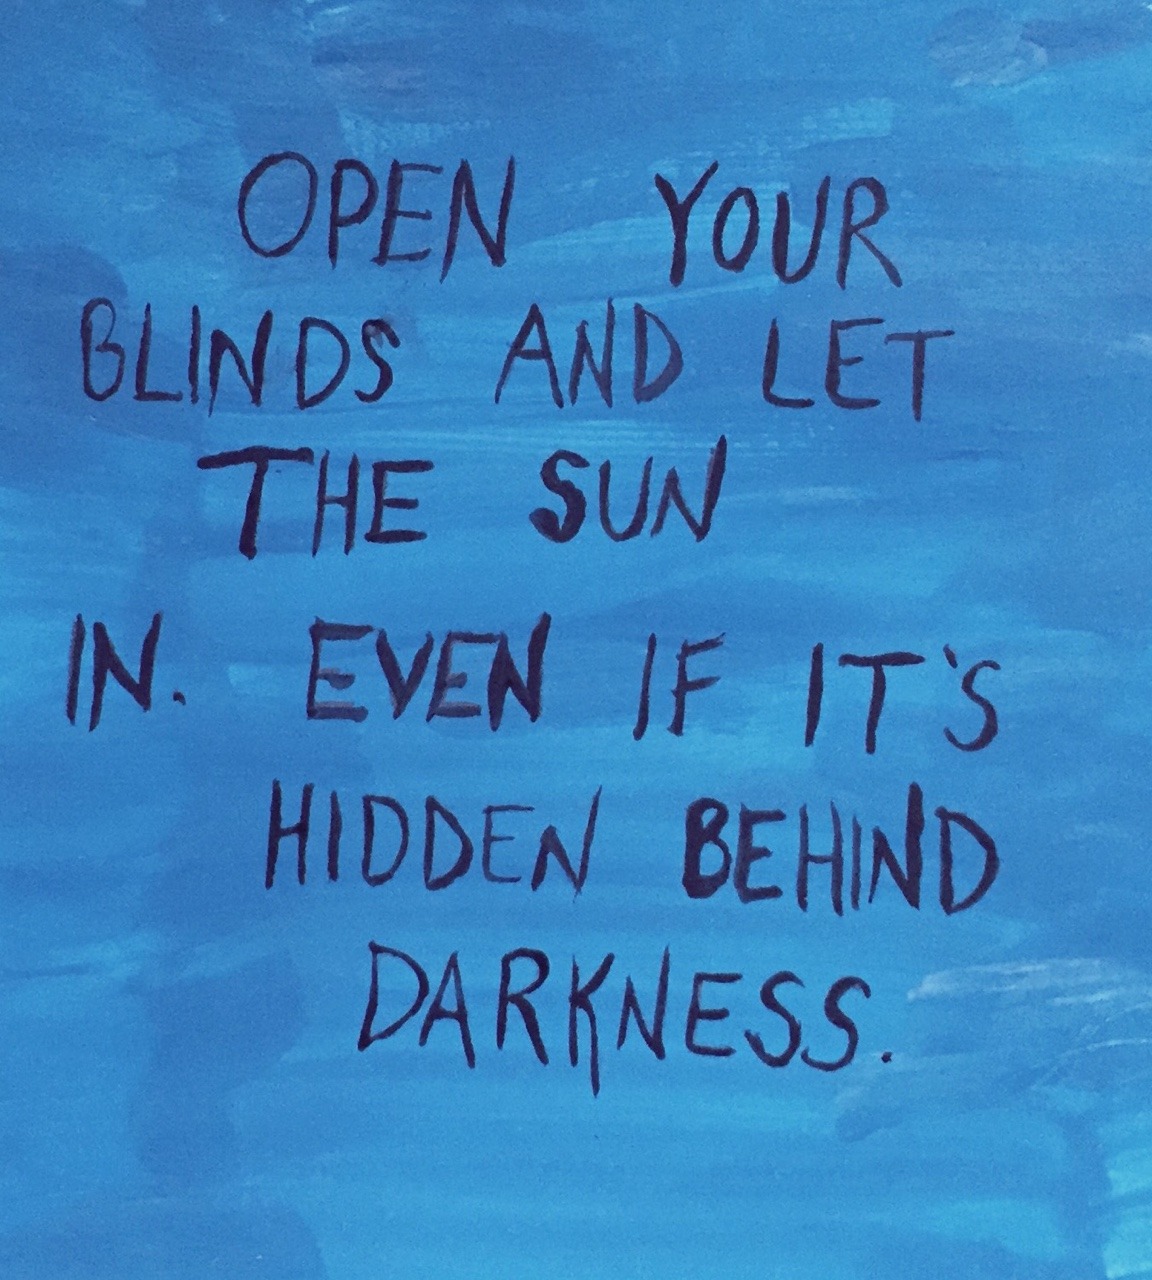 OPEN YOUR
BLINDS AND LET
THE SUN
IN. EVEN IF IT'S
HIDDEN BEHIND
DARKNESS.